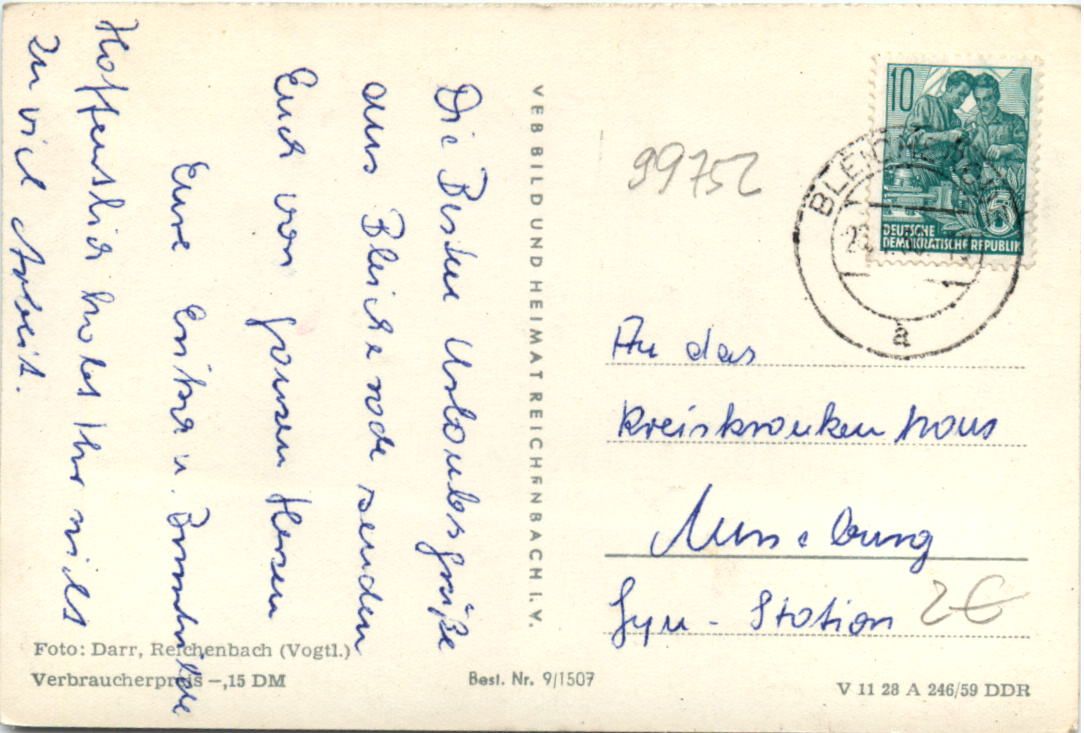 Die Besten Urlaubsgrüße
aus Bleicherode senden
Euch von ganzem Herzen
Eure
Hoffentlich habt Ihr nicht
zu viel Arbeit.
VEB BILD UND HEIMAT REICHENBACH I. V.
99752
10
DEUTSCHE
DEMOKRATISCHE REPUBLIK
a
An das
Kreiskrankenhaus
Gyn - Station
2€
Foto: Darr, Reichenbach (Vogtl.)
Verbraucherpreis –,15 DM
Best. Nr. 9/1507
V 11 28 A 246/59 DDR